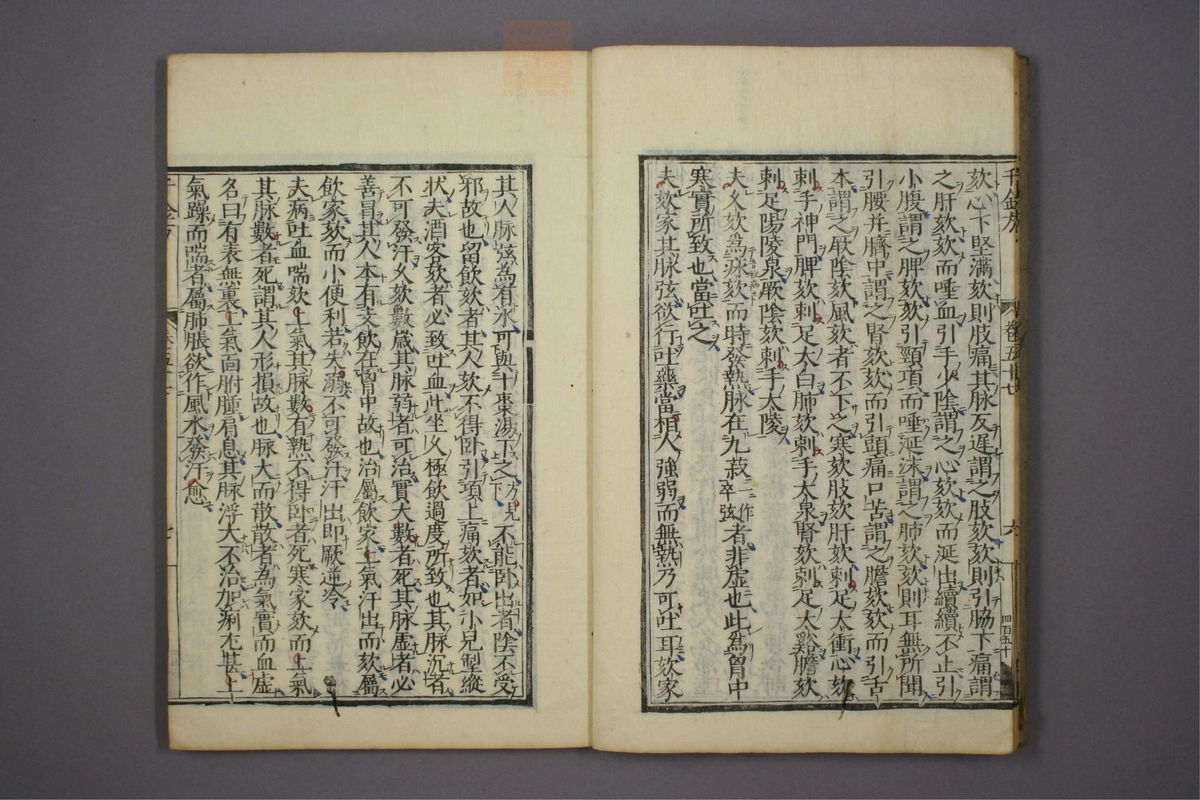 千金方
卷五十七
六
四百五十
欬心下堅滿欬則肢痛其脉反遲謂之肢欬欬則引脇下痛謂
之肝欬欬而唾血引手少陰謂之心欬欬而涎出續續不止引
小腹謂之脾欬欬引頸項而唾涎沫謂之肺欬欬則耳無所聞
引腰并臍中謂之腎欬欬而引頭痛口苦謂之膽欬欬而引舌
本謂之厥陰欬風欬者不下之寒欬肢欬肝欬刺足太衝心欬
刺手神門脾欬刺足太白肺欬刺手太泉腎欬刺足太谿膽欬
刺足陽陵泉厥陰欬刺手太陵
夫久欬為㽱欬而時發熱脉在九菽一作卒弦者非虛也此為胷中
寒實所致也當吐之
夫欬家其脉弦欲行吐藥當相人強弱而無熱乃可吐耳欬家
其人脉弦為有水可與十棗湯下之方見下不能卧出者陰不受
邪故也留飲欬者其人欬不得卧引項上痛欬者如小兒掣縱
狀夫酒客欬者必致吐血此坐久極飲過度所致也其脉沉者
不可發汗久欬數歲其脉弱者可治實大數者死其脉虛者必
善冒其人本有支飲在胷中故也治屬飲家上氣汗出而欬屬
飲家欬而小便利若失溺不可發汗汗出即厥逆冷
夫病吐血喘欬上氣其脉數有熱不得卧者死寒家欬而上氣
其脉數者死謂其人形損故也脉大而散散者為氣實而血虛
名曰有表無裏上氣面胕腫肩息其脉浮大不治加痢尤甚上
氣躁而喘者屬肺脹欲作風水發汗愈
七